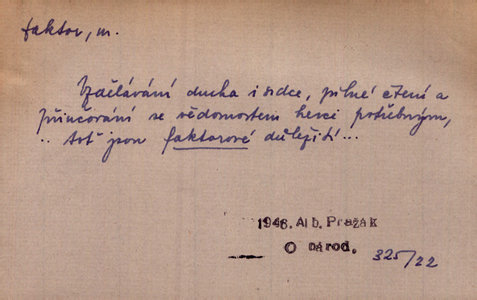 faktor, m.
Vzdělávání ducha i srdce, pilné čtení a
přiučování se vědomostem herci potřebným,
.. toť jsou faktorové důležití...
1946. Alb. Pražák
O národ.
325/22